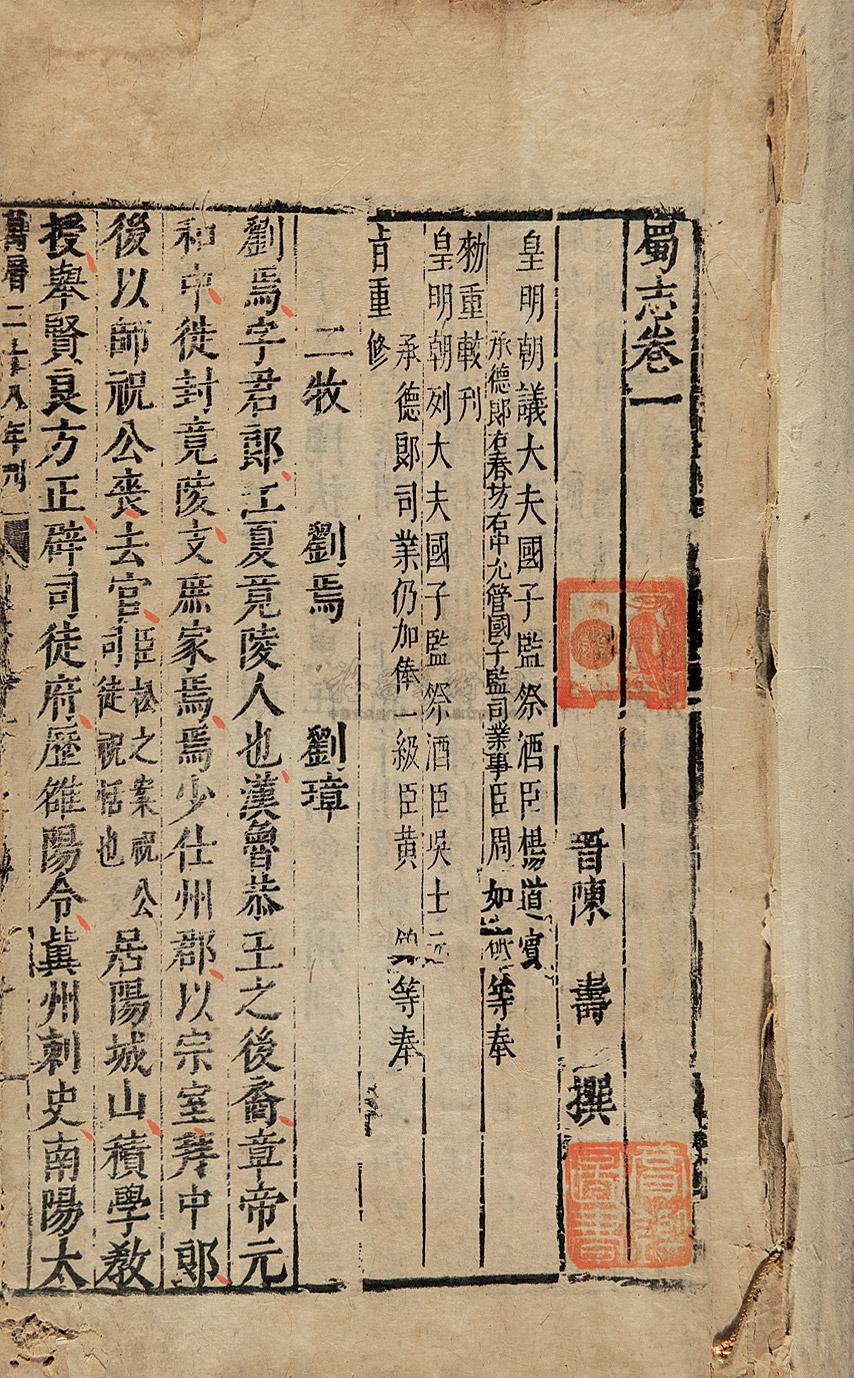 蜀志卷一
晉陳壽撰
皇明朝議大夫國子監祭酒臣楊道賓
承德郎右春坊右中允管國子監司業事臣周如砥等奉
敕重較刊
皇明朝列大夫國子監祭酒臣吳士元
承德郎司業仍加俸一級臣黃等奉
旨重修
二牧 劉焉 劉璋
劉焉字君郎江夏竟陵人也漢魯恭王之後裔章帝元
和中徙封竟陵支庶家焉焉少仕州郡以宗室拜中郎
後以師祝公喪去官臣松之案祝公司徒祝恬也居陽城山積學教
授舉賢良方正辟司徒府歷雒陽令冀州刺史南陽太
萬曆二十八年刊